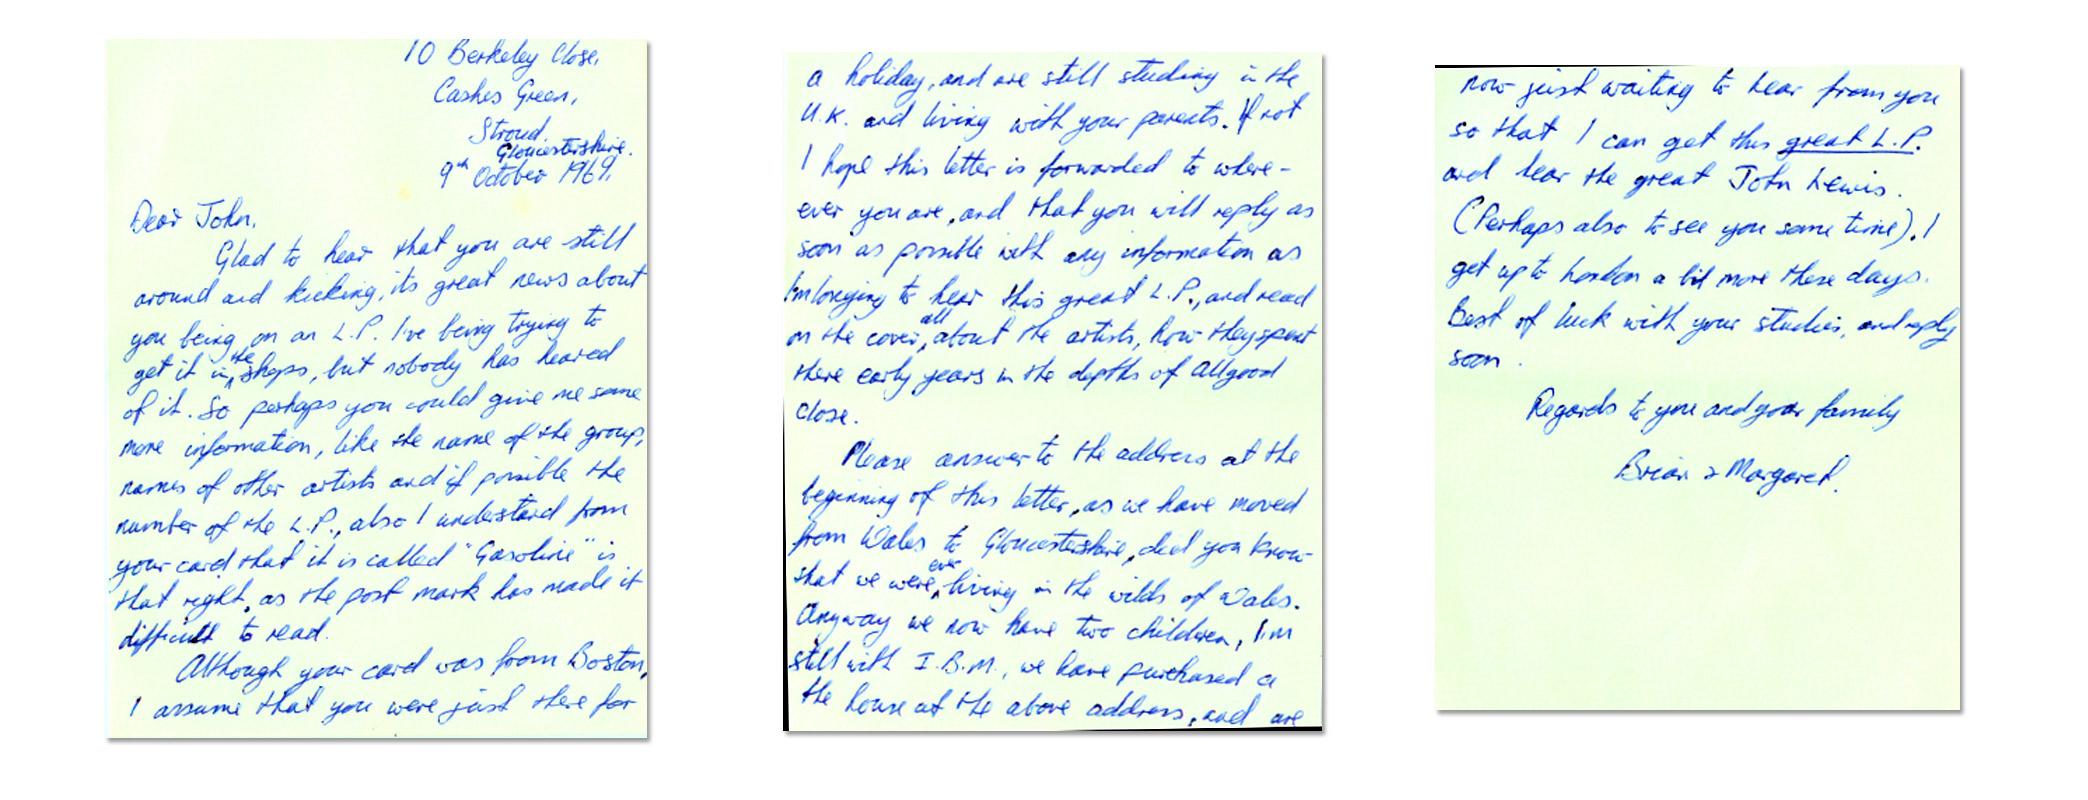 10 Berkeley Close,
Cashes Green,
Stroud.
Gloucestershire.
9th October 1969.
Dear John,
Glad to hear that you are still
around and kicking, its great news about
you being on an L.P. I've being trying to
get it in the shops, but nobody has heared
of it. So perhaps you could give me some
more information, like the name of the group,
names of other artists and if possible the
number of the L.P., also I understand from
your card that it is called "Gasoline" is
that right, as the post mark has made it
difficult to read.
Although your card was from Boston,
I assume that you were just there for
a holiday, and are still studing in the
U.K. and living with your parents. If not
I hope this letter is forwarded to where-
ever you are, and that you will reply as
soon as possible with any information as
I'm longing to hear this great L.P., and read
on the cover, all about the artists, how they spent
there early years in the depths of Allgood
Close.
Please answer to the address at the
beginning of this letter, as we have moved
from Wales to Gloucestershire, did you know
that we were ever living in the wilds of Wales.
Anyway we now have two children, I'm
still with I.B.M., we have purchased a
the house at the above address, and are
now just waiting to hear from you
so that I can get this great L.P.
and hear the great John Lewis.
(Perhaps also to see you some time). I
get up to London a bit more these days.
Best of luck with your studies, and reply
soon.
Regards to you and your family
Brian & Margaret.